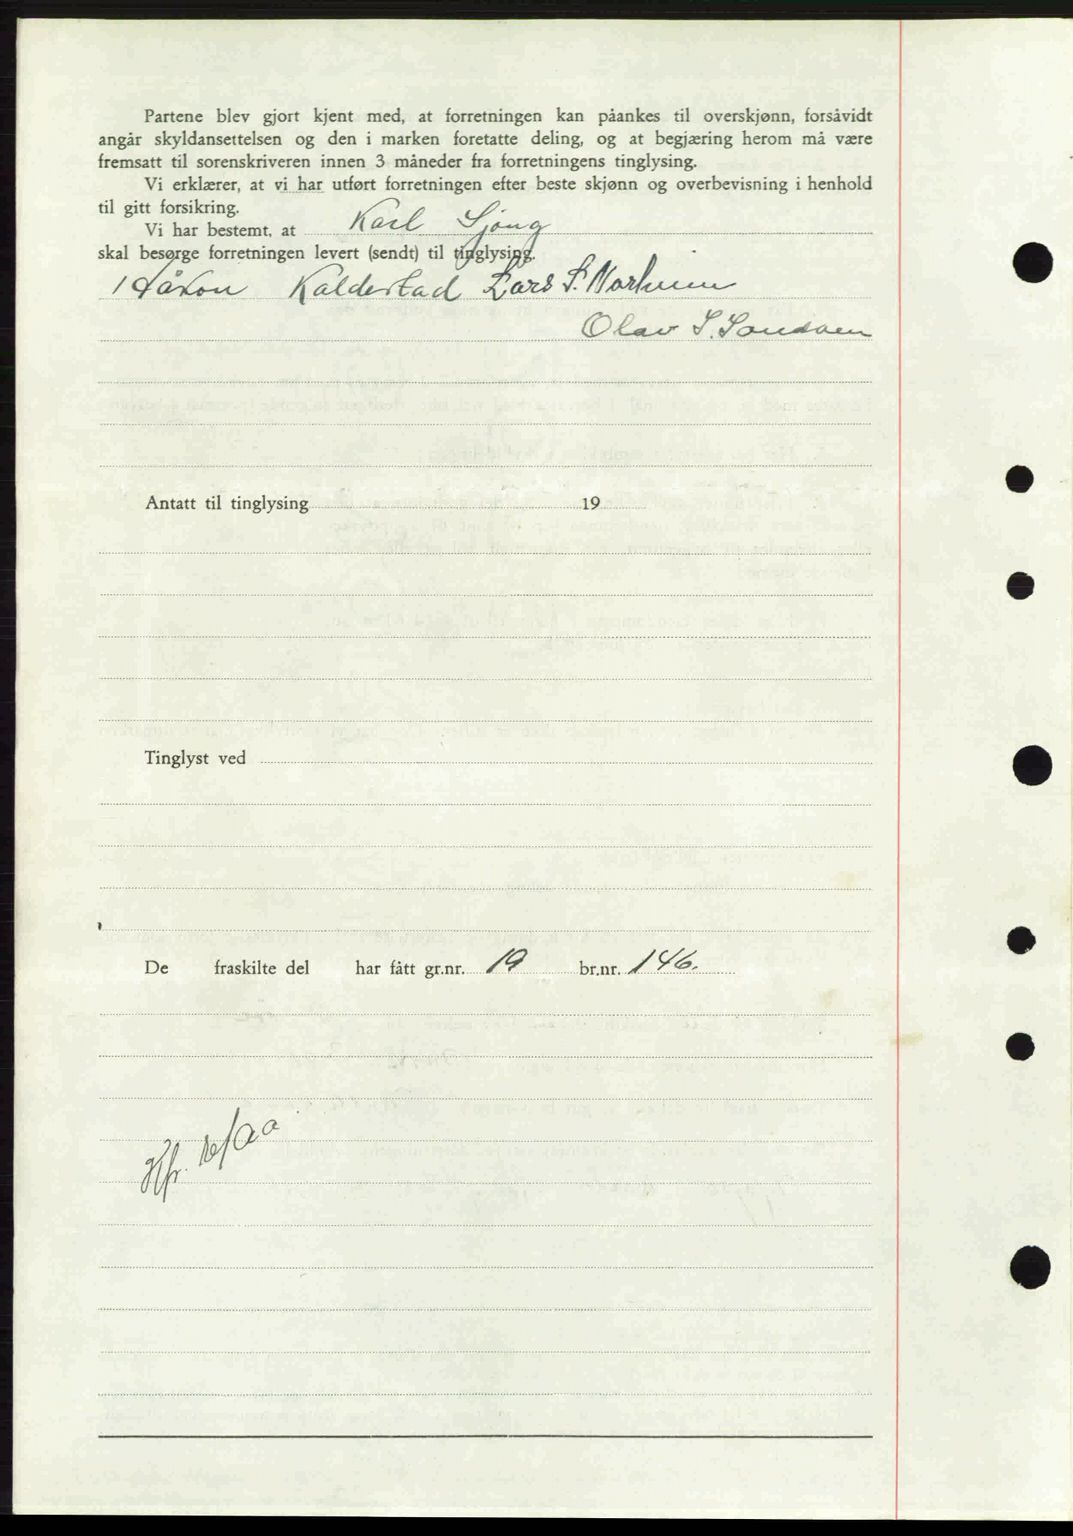 Partene blev gjort kjent med, at forretningen kan påankes til overskjønn, forsåvidt
angår skyldansettelsen og den i marken foretatte deling, og at begjæring herom må være
fremsatt til sorenskriveren innen 3 måneder fra forretningens tinglysing.
Vi erklærer, at vi har utført forretningen efter beste skjønn og overbevisning i henhold
til gitt forsikring.
Vi har bestemt, at Karl Sjong
skal besørge forretningen levert (sendt) til tinglysing.
Håkon Kaldestad Lars S. Norheim
Olav S. Sandven
Antatt til tinglysing 19
Tinglyst ved
De fraskilte del har fått gr.nr. 19 br.nr. 146.
Kfr.